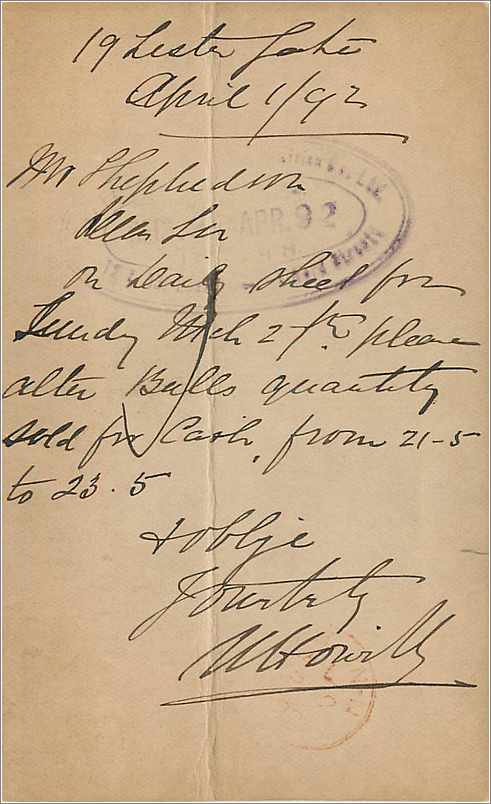 19 Lister Gate
April 1/92
Mr Shepherdson
Dear Sir
APR. 92
on Daily sheet for
Sunday Mch 27th please
alter Bulls quantity
sold for Cash, from 21-5
to 23.5
& oblige
Yours truly
W Howitt